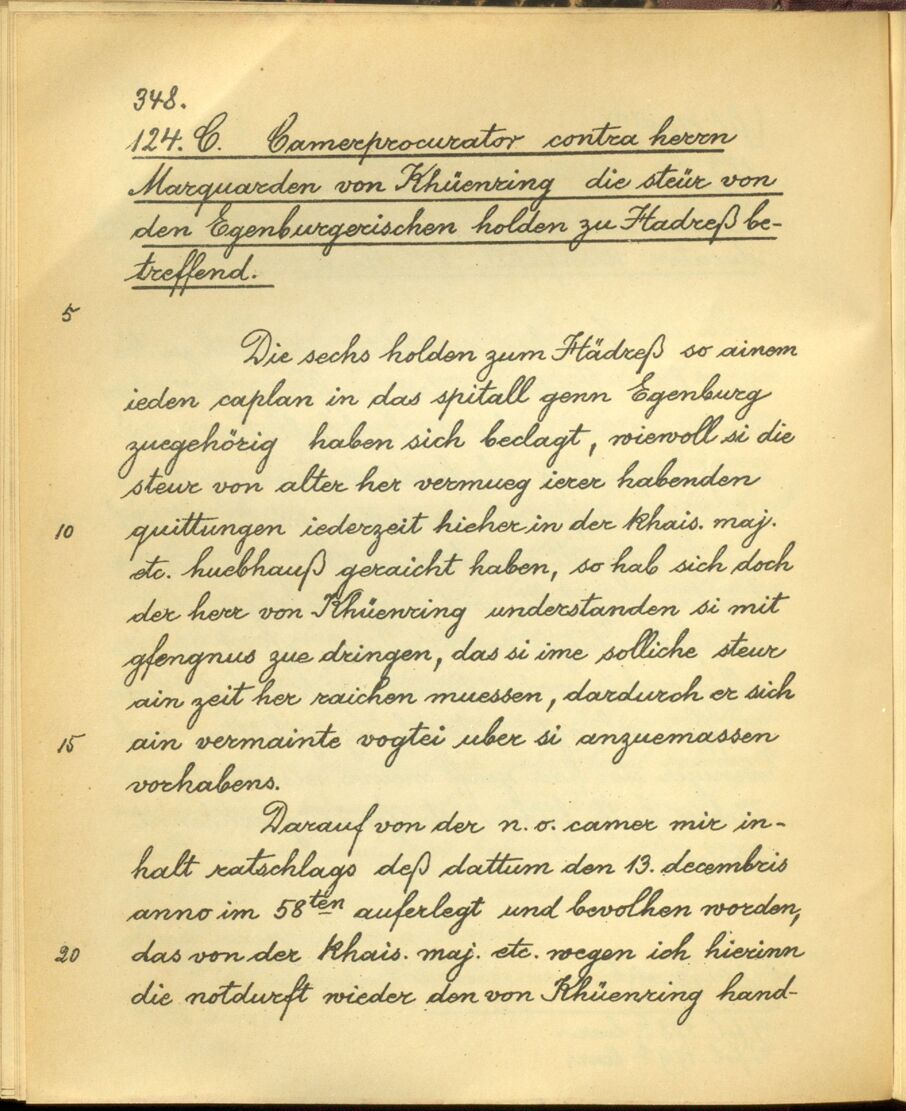 348.
124. C. Camerprocurator contra herrn
Marquarden von Khüenring die steür von
den Egenburgerischen holden zu Hadreß be-
treffend.
5
Die sechs holden zum Hädreß so ainem
ieden caplan in das spitall genn Egenburg
zuegehörig haben sich beclagt, wiewoll si die
steur von alter her vermueg ierer habenden
10 quittungen iederzeit hieher in der khais. maj.
etc. huebhauß geraicht haben, so hab sich doch
der herr von Khüenring understanden si mit
gfengnus zue dringen, das si ime solliche steur
ain zeit her raichen muessen, dardurch er sich
15 ain vermainte vogtei uber si anzuemassen
vorhabens.
Darauf von der n. o. camer mir in-
halt ratschlags deß dattum den 13. decembris
anno im 58ten auferlegt und bevolhen worden,
20 das von der khais. maj. etc. wegen ich hierinn
die notdurft wieder den von Khüenring hand-